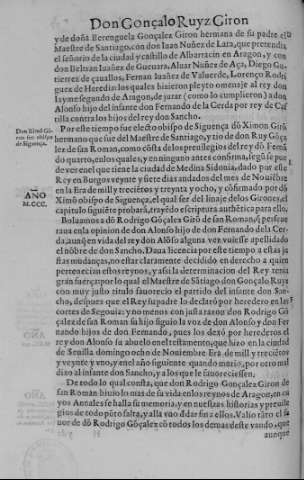 Don Gonçalo Ruyz Giron
y de doña Berenguela Gonçalez Giron hermana de su padre el
Maestre de Santiago, con don Iuan Nuñez de Lara, que pretendia
el señorio de la ciudad y castillo de Albarracin en Aragon, y con
don Beltran Iuañez de Gueuara, Aluar Nuñez de Aça, Diego Gu-
tierrez de çauallos, Fernan Iuañez de Valuerde, Lorenço Rodri
guez de Heredia: los quales hizieron pleyto omenaje al rey don
Iayme segundo de Aragon, de jurar (como lo cumplieron) a don
Alonso hijo del infante don Fernando de la Cerda por rey de Cas
tilla contra los hijos del rey don Sancho.
Por este tiempo fue electo obispo de Siguença dō Ximon Girō
hermano que fue del Maestre de Santiago, y tio de don Ruy Gōça
lez de san Roman, como cōsta de los preuilegios del rey dō Fernā
do quarto, en los quales, y en ninguno antes confirma, segū se pue
de ver en el que tiene la ciudad de Medina Sidonia, dado por este
Rey en Burgos veynte y siete dias andados del mes de Nouiēbre
en la Era de mill y trezientos y treynta y ocho, y cōfirmado por dō
Ximō obispo de Siguença, el qual ser del linaje de los Girones, el
capitulo siguiēte prouará, trayēdo escriptura authētica para ello.
Boluamos a dō Rodrigo Gōçalez Girō de san Romā, q̄ perseue
raua en la opinion de don Alonso hijo de don Fernando de la Cer-
da, aunq̄ en vida del rey don Alōso alguna vez vuiesse apellidado
el nōbre de don Sancho. Daua licencia por este tiempo a estas ja
stas mudanças, no estar claramente decidido en derecho a quien
pertenecian estos reynos, y assi la determinacion del Rey tenia
gran fuerça: por lo qual el Maestre de Sātiago don Gonçalo Ruyz
con muy justo titulo fauorecio el partido del infante don San-
cho, despues que el Rey su padre lo declaró por heredero en las
cortes de Segouia: y no menos con justa razon don Rodrigo Gō
çalez de san Roman su hijo siguio la voz de don Alonso y don Fer
nando hijos de don Fernando, pues los dexó por herederos el
rey don Alonso su abuelo en el testamento, que hizo en la ciudad
de Seuilla domingo ocho de Nouiembre Era de mill y trezientos
y veynte y vno, y en el año siguiente quando murio, por otro mal
dixo al infante don Sancho, y a los que le fauoreciessen.
De todo lo qual consta, que don Rodrigo Gonçalez Giron de
san Roman biuio lo mas de su vida en los reynos de Aragon, en cu
yos Annales se halla su memoria, y en nuestras historias y preuile
gios de todo pōto falta, y alla vuo d̄ dar fin a ellos. Valio tāto el fa
uor de dō Rodrigo Gōçalez cō todos los demas deste vando, que
aunque
Don Simō Gi-
ron fue obispo
de Siguença.
AÑO
M.CCC.